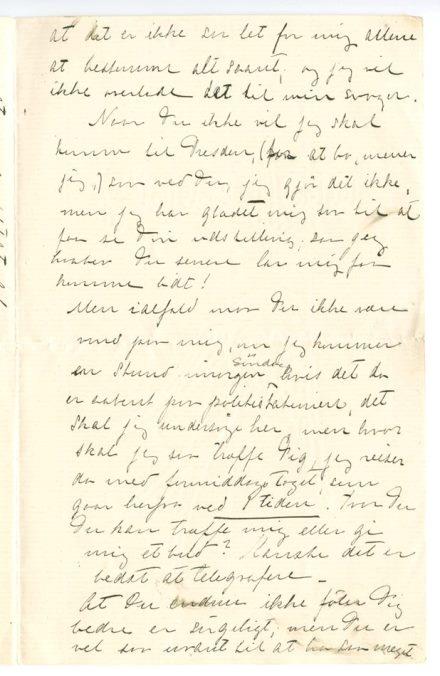 at det er ikke saa let for mig allene
at bestemme alt saant, og jeg vil
ikke overlade det til min svoger.
Naar Du ikke vil jeg skal
komme til Dresden, (for at bo, mener
jeg,) saa ved Du, jeg gjør det ikke,
men jeg har glædet mig saa til at
faa se Din udstilling, saa jeg
haaber Du senere lar mig faa
komme lidt!
Men ialfald maa Du ikke være
vred paa mig, om jeg kommer
en stund imorgen Søndag, hvis det da
er aabent paa politi stationen, det
skal jeg undersøge her, men hvor
skal jeg saa træffe Dig, jeg reiser
da med formiddags toget, som
gaar herfra ved 9 tiden. Tror Du
Du kan træffe mig eller gi
mig et bud? Kanske det er
bedst at telegrafere –
At Du endnu ikke føler Dig
bedre er sørgeligt, men Du er
vel saa uvant til at ha saa meget